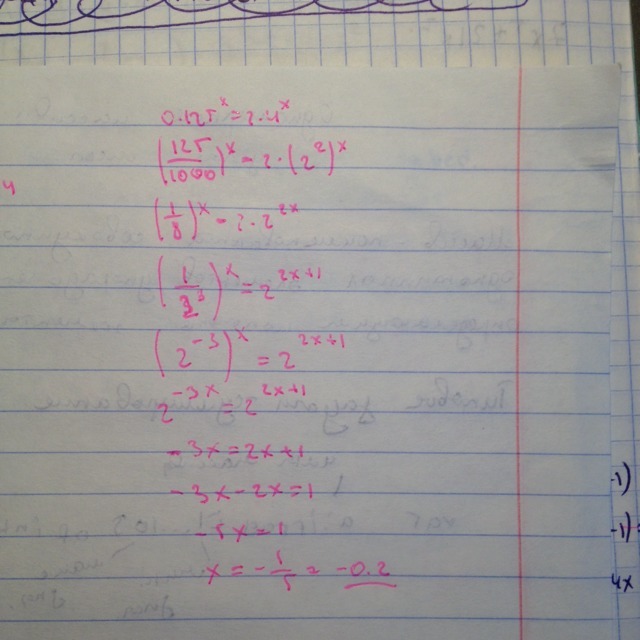 0.125^x = 2·4^x
(125/1000)^x = 2·(2^2)^x
ч
(1/8)^x = 2·2^{2x}
(1/2^3)^x = 2^{2x+1}
(2^{-3})^x = 2^{2x+1}
2^{-3x} = 2^{2x+1}
-3x = 2x+1
-3x-2x=1
-5x=1
x = -1/5 = -0.2
-1)
-1)
4x